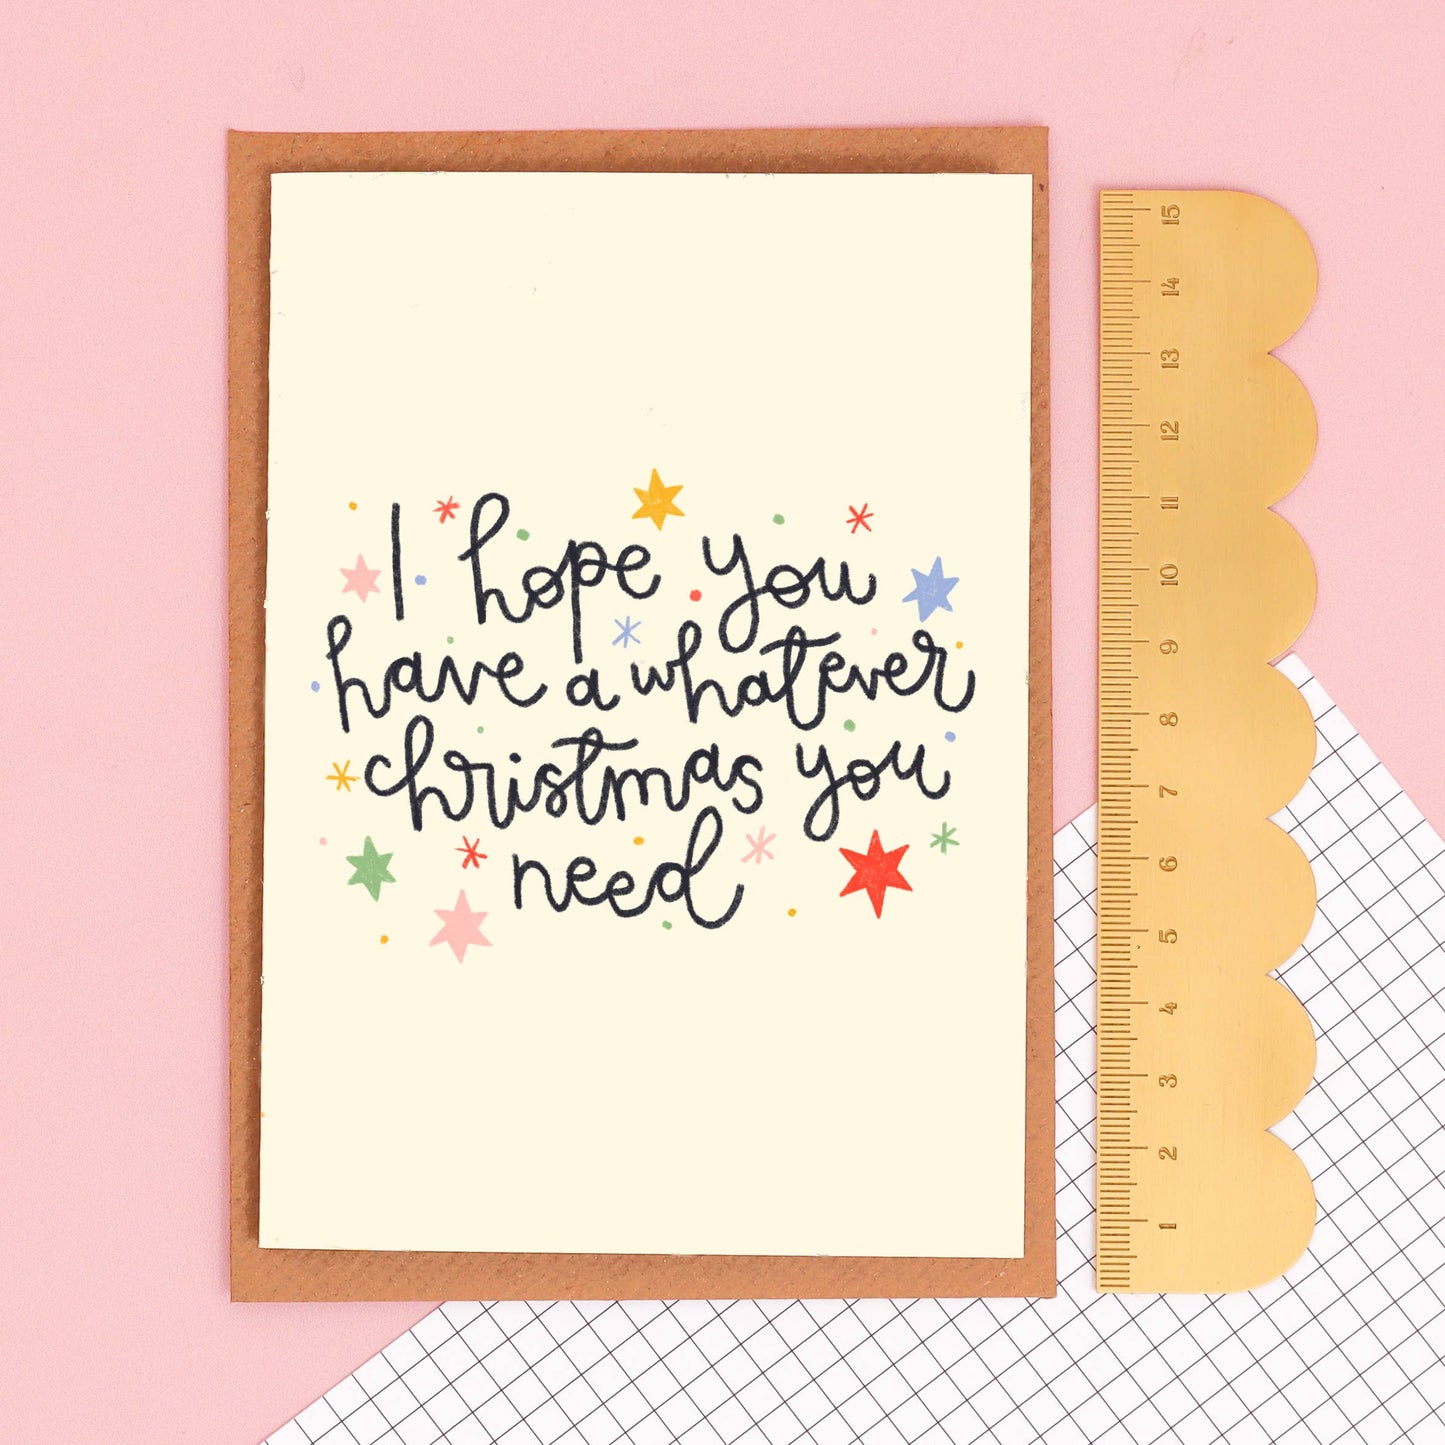 I hope you
have a whatever
christmas you
need
15
14
13
12
11
10
9
8
7
6
5
4
3
2
1